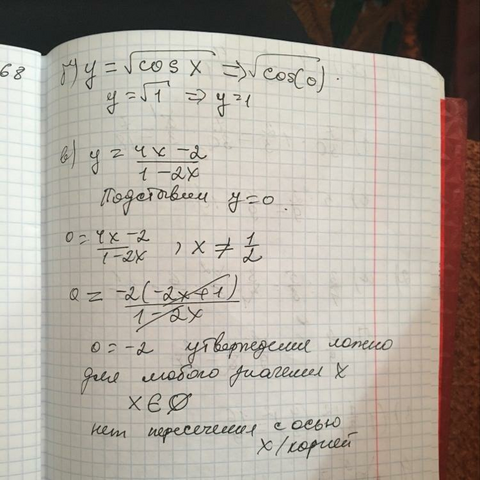 68
г) y = √cos x ⇒ √cos(0) .
y = √1 ⇒ y = 1
в) y = 4x - 2 / 1 - 2x
Подставим y = 0 .
0 = 4x - 2 / 1 - 2x , x ≠ 1/2
0 = -2(-2x+1) / 1 - 2x
0 = -2 утверждения ложно
для любого значения X
X ∈ ∅
нет пересечения с осью
X/корней